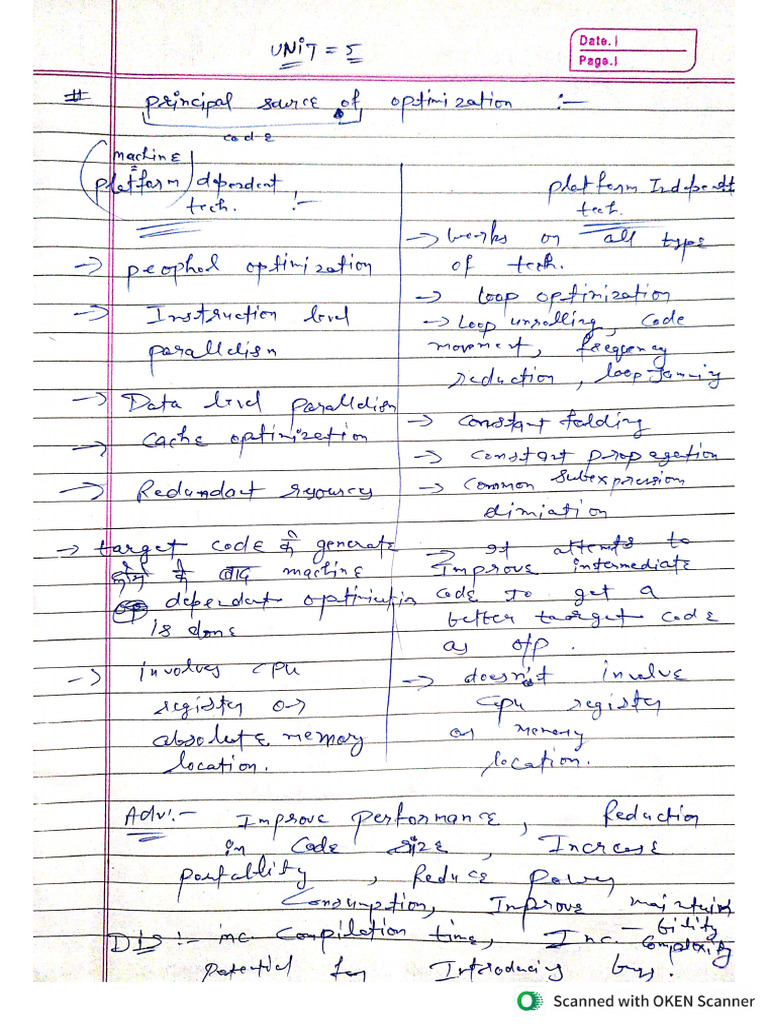 UNIT = 5
Date.
Page.
# principal source of optimization :-
code
machine
platform dependent
tech. :-
-> peophol optimization
-> Instruction level
parallelism
-> Data level parallelism
-> Cache optimization
-> Redundant resources
-> target code के generate
होने के बाद machine
dependent optimization
is done
-> involves CPU
register or
absolute memory
location.
platform Independent
tech.
-> works on all type
of tech.
-> loop optimization
-> Loop unrolling, code
movement, frequency
reduction, loop Jamming
-> constant folding
-> constant propagation
-> common subexpression
elimiation
-> It attempts to
Improve intermediate
code to get a
better target code
as o/p.
-> doesn't involve
CPU register
or memory
location.
Adv:- Improve performance, Reduction
in code size, Increase
portability, Reduce power
Consumption, Improve maintain
-bility
DIS :- inc. compilation time, Inc. complexity
potential for Introducing bugs.
Scanned with OKEN Scanner